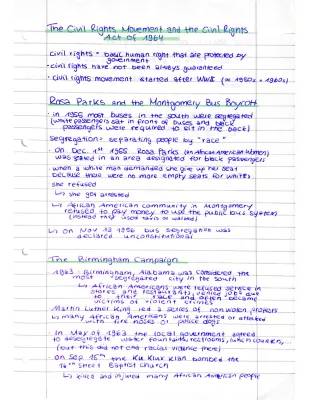 The Civil Rights Movement and the Civil Rights
Act of 1964
civil rights = basic human right that are protected by
government
• civil rights have not been always guaranteed
• civil rights movement started after WWII (≈ 1950s - 1960s)
Rosa Parks and the Montgomery Bus Boycott
• in 1955 most buses in the south were segregated
(white passengers sat in front of buses and black
passengers were required to sit in the back)
segregation = separating people by "race"
• On Dec. 1st 1955 Rosa Parks (an African American women)
was seated in an area designated for black passengers
when a white man demanded she give up her seat
because there were no more empty seats for whites
she refused
↳ she got arrested
↳ African American community in Montgomery
refused to pay money to use the public bus system
(instead they used taxis or walked)
↳ on Nov 13 1956 bus segregation was
declared unconstitutional
The Birmingham Campaign
1963 Birmingham, Alabama was considered the
most segregated city in the south
↳ African Americans were refused service in
stores and restaurants, denied jobs due
to their race and often became
victims of violent crimes
Martin Luther King led a series of nonviolent protests
↳ many African Americans were arrested or attacked
with fire hoses or police dogs
• In May of 1963 the local government agreed
to desegregate water fountains, restrooms, lunch counters,
(but this did not end racial violence there)
• on Sep 15th the Ku Klux Klan bombed the
16th Street Baptist Church
↳ killed and injured many African American people